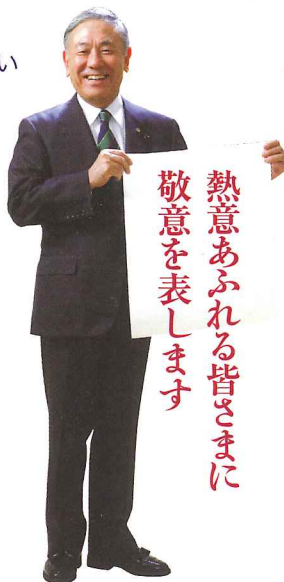 い
熱意あふれる皆さまに
敬意を表します